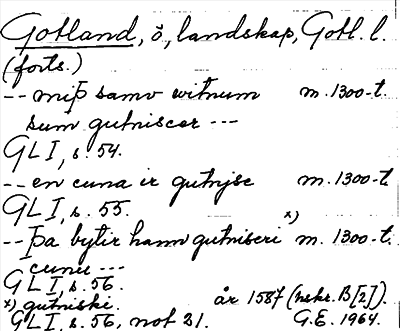 Gotland, ö, landskap, Gotl. l.
(forts.)
-- miþ samv witnum m. 1300-t.
sum gutniscer ---
GLI, s. 54.
-- en cuna ir gutnisc m. 1300-t.
GLI, s. 55.
-- þa bytir hann gutniscri x) m. 1300-t.
cunu ---
GLI, s. 56.
x) gutniski. år 1587 (hskr. B[2]).
GLI, s. 56, not 21. G.E. 1964.